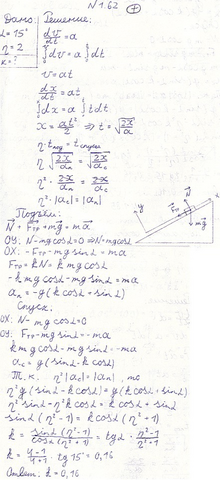 N 1.62 +
Дано: Решение:
α = 15° dv/dt = a
η = 2 ∫dv = a∫dt
k = ? v = at
dx/dt = at
∫dx = a∫t dt
x = at²/2 ⇒ t = √(2x/a)
η · t под = t спуска
η √(2x/aп) = √(2x/aс)
η² · 2x/aп = 2x/aс
η² · |aс| = |aп|
Подъём:
N + Fтр + mg = ma
OY: N - mg cosα = 0 ⇒ N = mg cosα
OX: -Fтр - mg sinα = ma
Fтр = kN = k mg cosα
-k mg cosα - mg sinα = ma
aп = -g(k cosα + sinα)
Спуск:
OX: N - mg cosα = 0
OY: Fтр - mg sinα = -ma
k mg cosα - mg sinα = -ma
aс = g(sinα - k cosα)
Т.к. η²|aс| = |aп|, то
η² g (sinα - k cosα) = g(k cosα + sinα)
η² sinα - η² k cosα = k cosα + sinα
sinα (η² - 1) = k cosα (η² + 1)
k = sinα (η² - 1)/cosα (η² + 1) = tgα · (η² - 1)/(η² + 1)
k = (4-1)/(4+1) tg 15° = 0,16
Ответ: k = 0,16
y
x
N
Fтр
mg
α